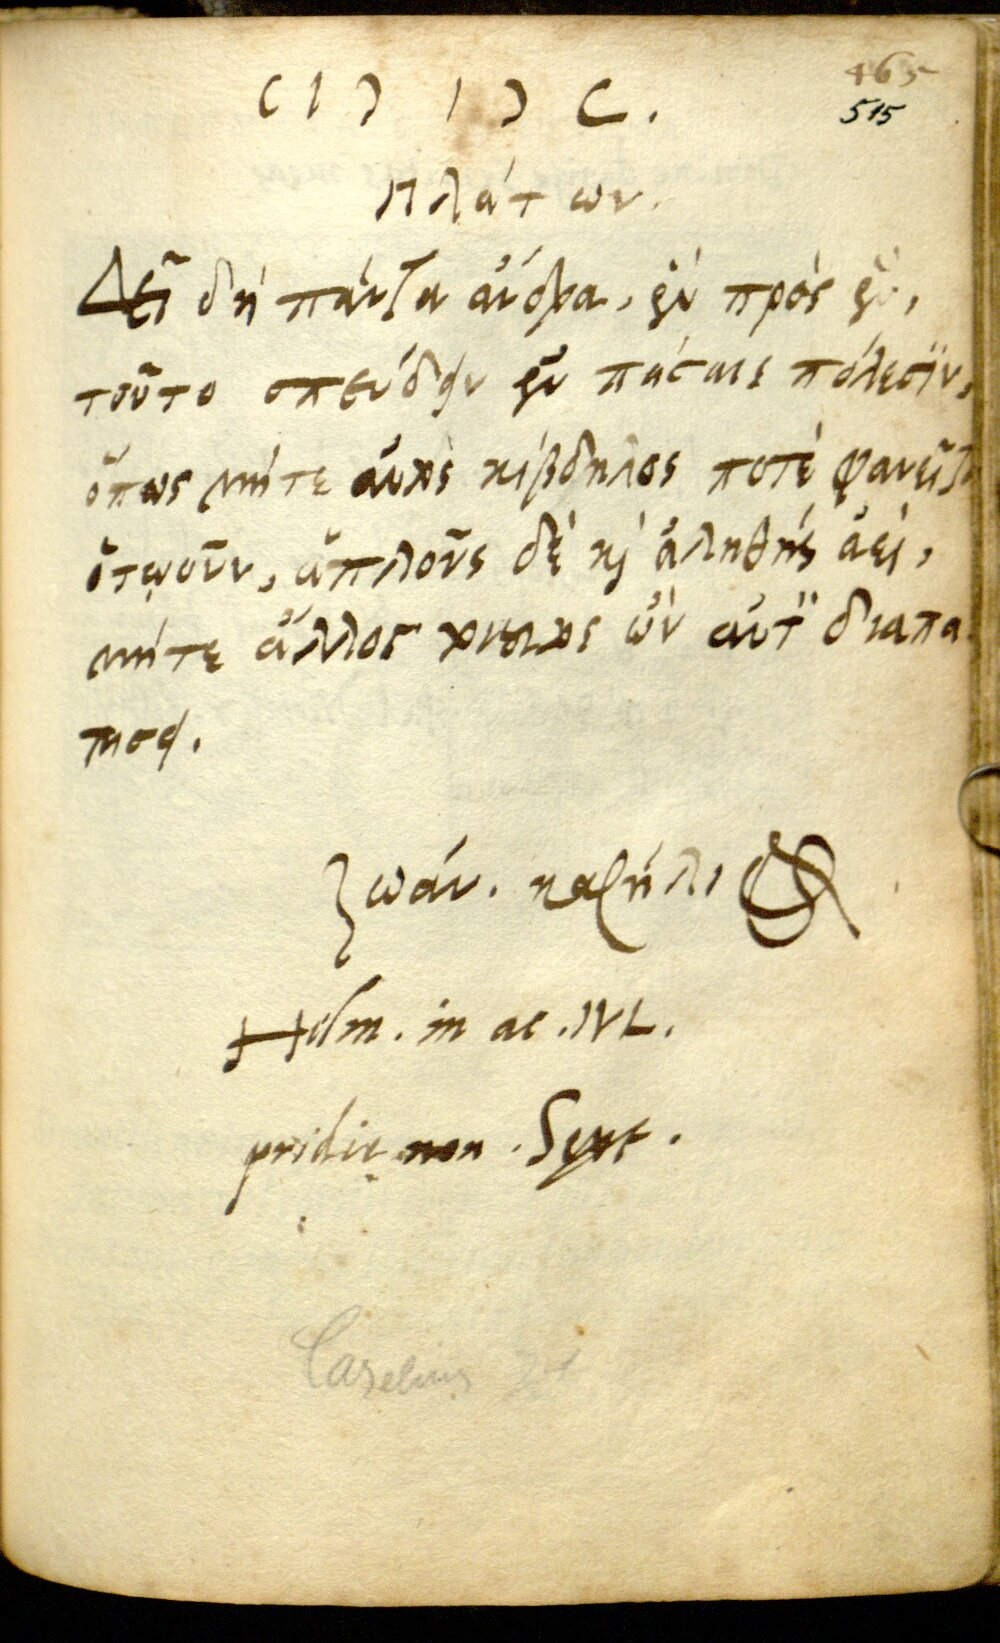 465
CIↃ IↃ C.
515
Πλάτων.
Δεῖ δὴ πάντα ἄνδρα, ἓν πρὸς ἓν,
τοῦτο σπεύδειν ἐν πάσαις πόλεσιν,
ὅπως μήτε αὐτὸς κίβδηλος ποτὲ φανεῖται
ὁτῳοῦν, ἁπλοῦς δὲ κὶ ἀληθὴς ἀεὶ,
μήτε ἄλλος τοιοῦτος ὢν αὐτὸν διαπα
τήσει.
Ἰωάν. κασήλιος
Helm. in ac. IVL.
pridie non. Sept.
Caselius